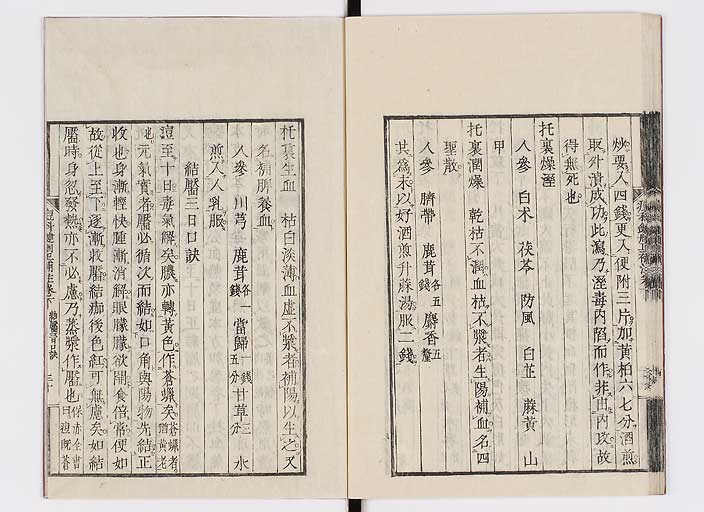 炒要入四錢更入便附三片加黃柏六七分酒煎
取外潰成功此瀉乃溼毒内陷而作非由内攻故
得無死也
托裏燥溼
人參 白朮 茯苓 防風 白芷 蔴黃 山
甲
托裏潤燥 乾枯不潤血枯不漿者生陽補血名四
聖散
人參 臍帶 鹿茸各五錢 麝香五釐
共爲末以好酒煎升蔴湯服二錢
托裏生血 枯白淡薄血虛不漿者補陽以生之又
名補脾養血
人參 川芎 鹿茸各一錢 當歸一錢五分 甘草三分 水
煎入人乳服
結靨三日口訣
痘至十日毒氣解矣膿亦轉黃色作蒼蠟矣蒼蠟者猶黃老
也元氣實者靨必循次而結如口角與陽物先結正
收也身漸輕快腫漸消解眼朦朦欲開食倍常便如
故從上至下逐漸收靨結痂後色紅可無慮矣如結
靨時身忽發熱亦不必慮乃蒸漿作靨也保赤全書曰痘既蒼